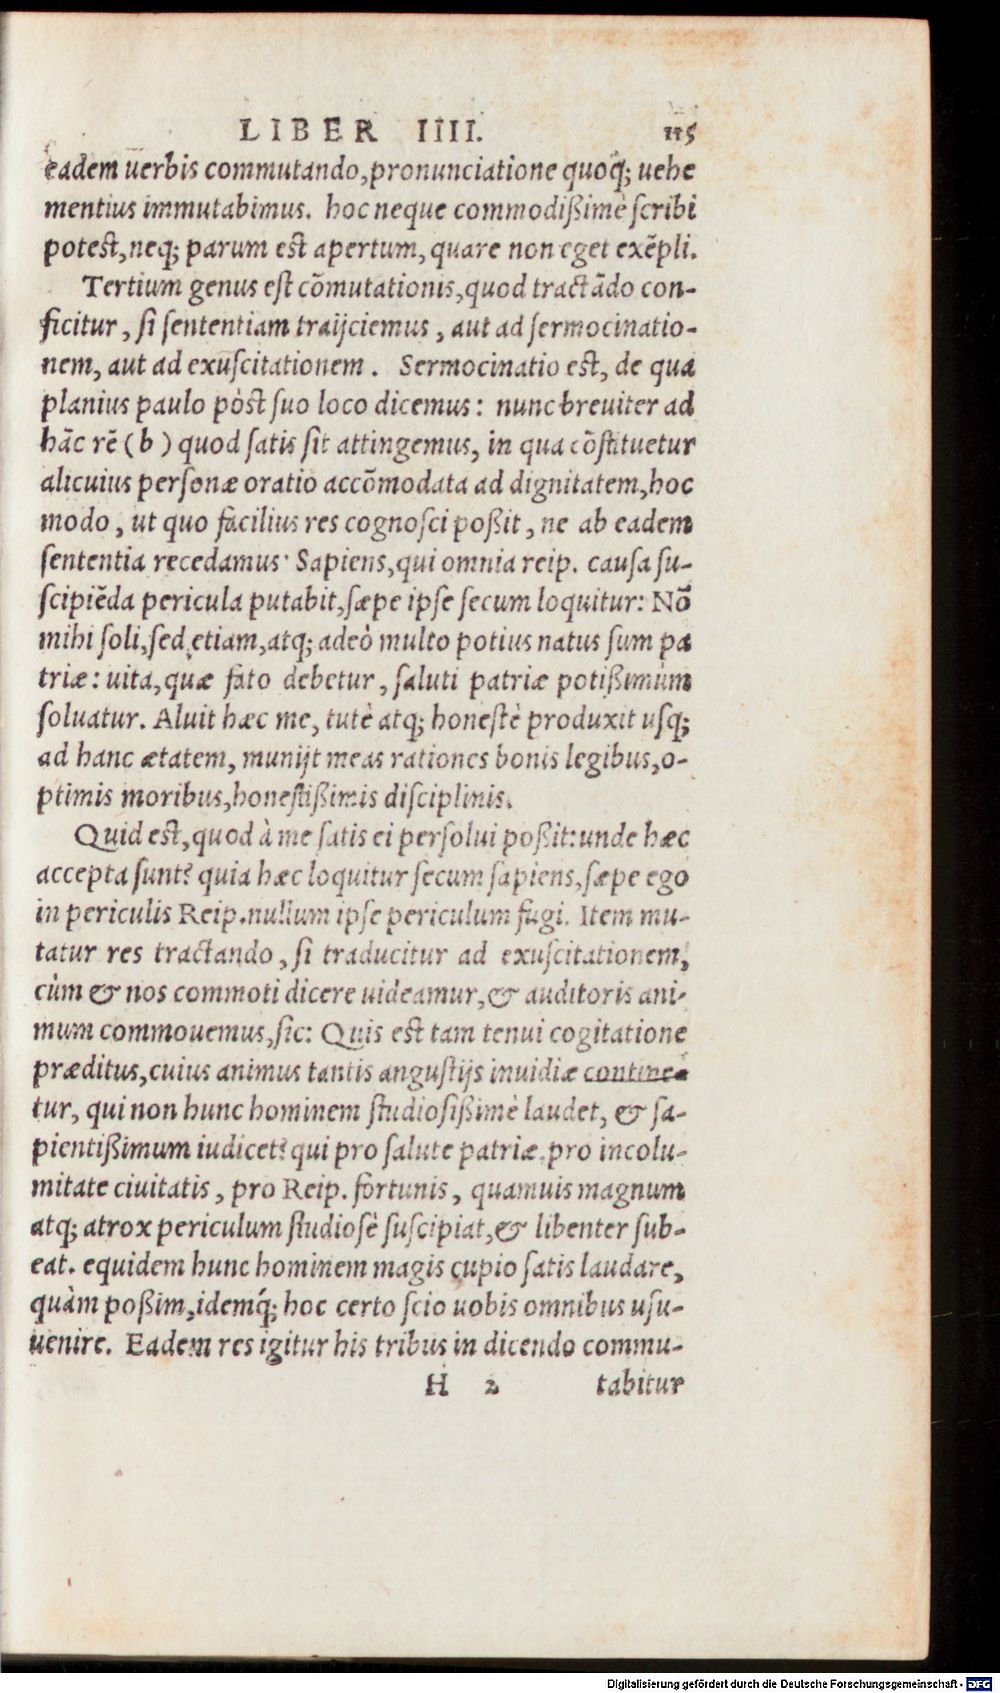 LIBER IIII. 115
eadem uerbis commutando, pronunciatione quoq́; uehe
mentius immutabimus. hoc neque commodißimè ſcribi
potest, neq; parum est apertum, quare non eget exẽpli.
Tertium genus est cõmutationis, quod tractãdo con-
ficitur, ſi ſententiam traijciemus, aut ad ſermocinatio-
nem, aut ad exuſcitationem. Sermocinatio est, de qua
planius paulo pòst ſuo loco dicemus: nunc breuiter ad
hãc rẽ (b) quod ſatis ſit attingemus, in qua cõstituetur
alicuius perſonæ oratio accõmodata ad dignitatem, hoc
modo, ut quo facilius res cognoſci poßit, ne ab eadem
ſententia recedamus· Sapiens, qui omnia reip. cauſa ſu-
ſcipiẽda pericula putabit, ſæpe ipſe ſecum loquitur: Nõ
mihi ſoli, ſed etiam, atq; adeò multo potius natus ſum pa
triæ: uita, quæ fato debetur, ſaluti patriæ potißimùm
ſoluatur. Aluit hæc me, tutè atq; honeſtè produxit uſq;
ad hanc ætatem, munijt meas rationes bonis legibus, o-
ptimis moribus, honeſtißimis diſciplinis.
Quid est, quod à me ſatis ei perſolui poßit: unde hæc
accepta ſunt? quia hæc loquitur ſecum ſapiens, ſæpe ego
in periculis Reip. nullum ipſe periculum fugi. Item mu-
tatur res tractando, ſi traducitur ad exuſcitationem,
cùm & nos commoti dicere uideamur, & auditoris ani-
mum commouemus, ſic: Quis est tam tenui cogitatione
præditus, cuius animus tantis anguſtijs inuidiæ continea
tur, qui non hunc hominem ſtudioſißimè laudet, & ſa-
pientißimum iudicet? qui pro ſalute patriæ, pro incolu-
mitate ciuitatis, pro Reip. fortunis, quamuis magnum
atq; atrox periculum ſtudioſè ſuſcipiat, & libenter ſub-
eat. equidem hunc hominem magis cupio ſatis laudare,
quàm poßim, idemq́; hoc certo ſcio uobis omnibus uſu-
uenire. Eadem res igitur his tribus in dicendo commu-
H 2 tabitur
Digitalisierung gefördert durch die Deutsche Forschungsgemeinschaft - DFG